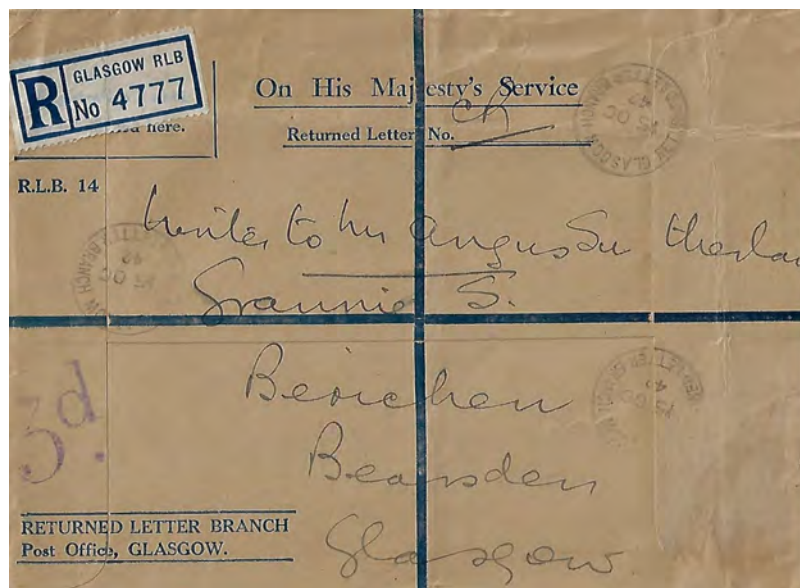 R GLASGOW RLB
No 4777
here.
On His Majesty's Service
Returned Letter No.
R.L.B. 14
Writer to Mr Angus Sutherlan
Grannie S.
3d.
Berichen
Bearsden
Glasgow
RETURNED LETTER BRANCH
Post Office, GLASGOW.